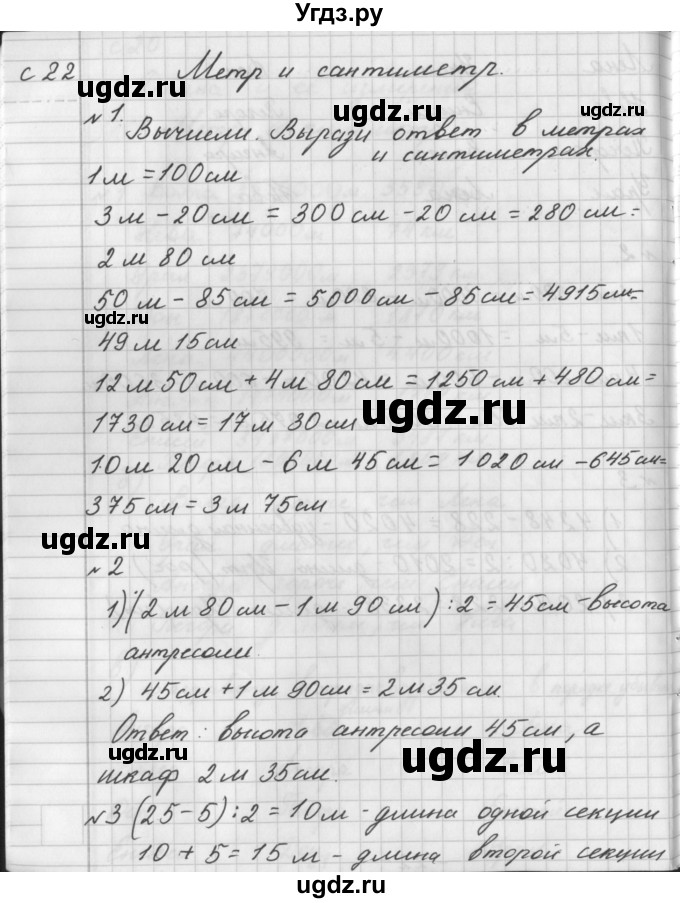 Угдз.ру
с 22 Метр и сантиметр.
ugdz.ru
№ 1.
Вычисли. Вырази ответ в метрах
и сантиметрах.
ugdz.ru ugdz.ru
1 м = 100 см
3 м - 20 см = 300 см - 20 см = 280 см =
2 м 80 см
50 м - 85 см = 5000 см - 85 см = 4915 см =
ugdz.ru
49 м 15 см
12 м 50 см + 4 м 80 см = 1250 см + 480 см =
ugdz.ru
1730 см = 17 м 30 см
10 м 20 см - 6 м 45 см = 1020 см - 645 см =
375 см = 3 м 75 см
ugdz.ru
№ 2
1) (2 м 80 см - 1 м 90 см) : 2 = 45 см - высота
ugdz.ru
антресоли.
2) 45 см + 1 м 90 см = 2 м 35 см.
Ответ: высота антресоли 45 см, а
ugdz.ru ugdz.ru
шкаф 2 м 35 см.
№3 (25 - 5) : 2 = 10 м - длина одной секции
10 + 5 = 15 м - длина второй секции
ugdz.ru